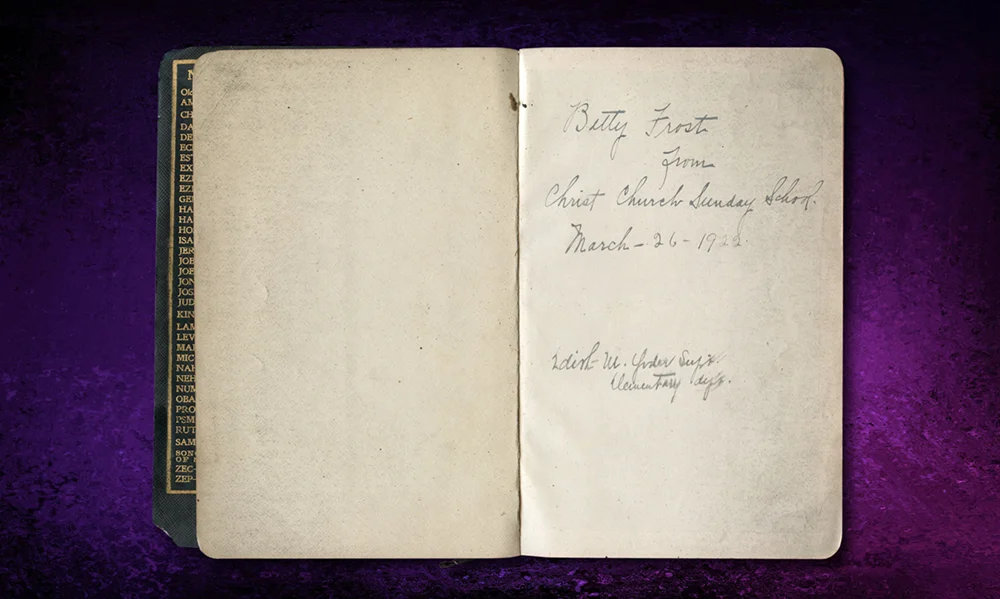 N
Old
AM
CH
DA
DE
EC
EST
EX
EZE
EZE
GE
HA
HA
HO
ISA
JER
JOB
JOE
JON
JOS
JUD
KIN
LAM
LEV
MAI
MIC
NAH
NEH
NUM
OBA
PRO
PSM
RUT
SAM
SONG
OF
ZEC-
ZEP-
Betty Frost
from
Christ Church Sunday School.
March - 26 - 1922.
Edith M. Yoder Supt.
Elementary dept.